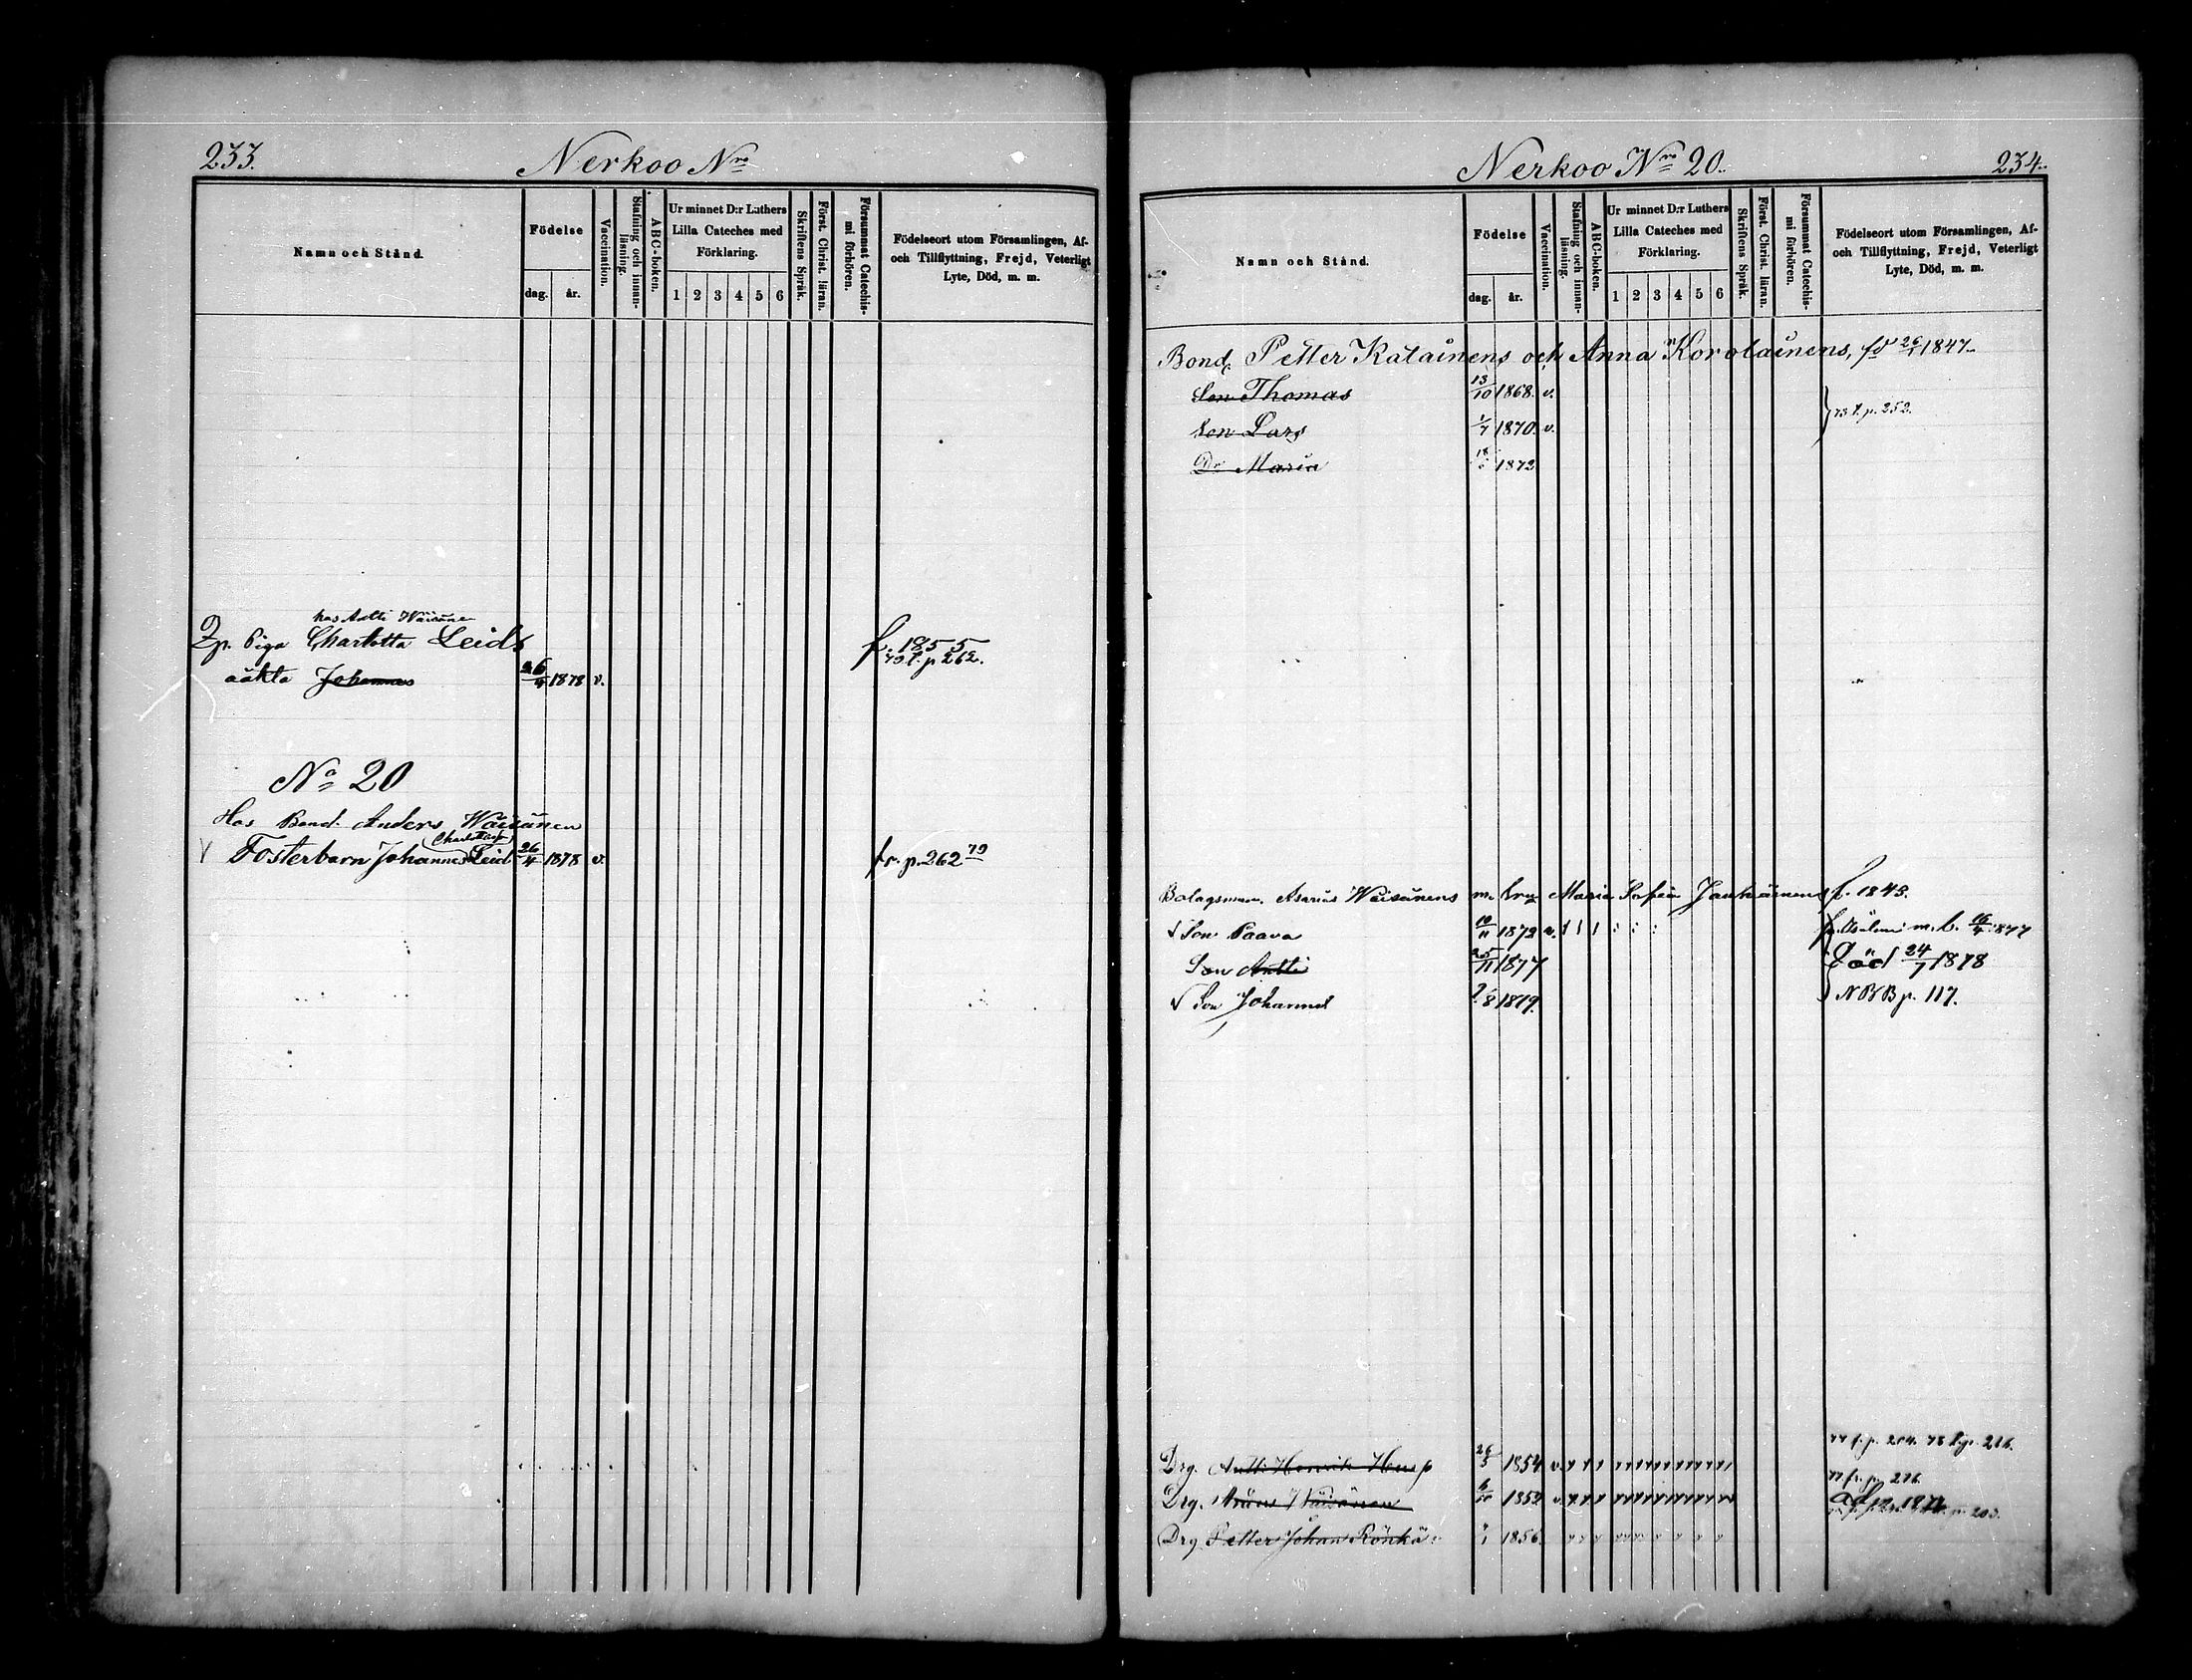 233.
Nerkoo Nro
Namn och Stånd.
Födelse
dag.
år.
Vaccination.
Stafning och innan-
läsning.
ABC-boken.
Ur minnet D:r Luthers
Lilla Cateches med
Förklaring.
1 2 3 4 5 6
Skriftens Språk.
Först. Christ. läran.
Försummat Catechis-
mi förhören.
Födelseort utom Församlingen, Af-
och Tillflyttning, Frejd, Veterligt
Lyte, Död, m. m.
hos Antti Wäisäne
Piga Charlotta Leids f. 1855
oäkta Johannes 26/4 1878 v. 79 f. p 262.
No 20
Hos Bond. Anders Wäisänen
Fosterbarn Johannes (Charlottas) Leid 26/4 1878 v. fr. p. 262 79
Nerkoo Nro 20.
234.
Namn och Stånd.
Födelse
dag.
år.
Vaccination.
Stafning och innan-
läsning.
ABC-boken.
Ur minnet D:r Luthers
Lilla Cateches med
Förklaring.
1 2 3 4 5 6
Skriftens Språk.
Först. Christ. läran.
Försummat Catechis-
mi förhören.
Födelseort utom Församlingen, Af-
och Tillflyttning, Frejd, Veterligt
Lyte, Död, m. m.
Bond. Petter Katainens och Anna Korolainens, fd 26/1 1847
Son Thomas 13/10 1868. v.
73 f. p. 252.
Son Lars 1/7 1870. v.
Dr Maria 1872
Bolagsman. Asarias Wäisänens m. hru Maria Sofia Jauhiainens f. 1843.
Son Paava 10/11 1872 v. m. b. 16/4 1877
Son Antti 25/11 1877 Död 24/7 1878
Son Johannes 8 1879. NBB p. 117.
77 f. p. 204. 78 p. 216.
Drg. Antti Henrik Hump 26/5 1854 v.
77 fr. p. 216
Drg. Wäisänen 1852 v.
p. 203.
Drg. Petter Johan Rönkä 1856.